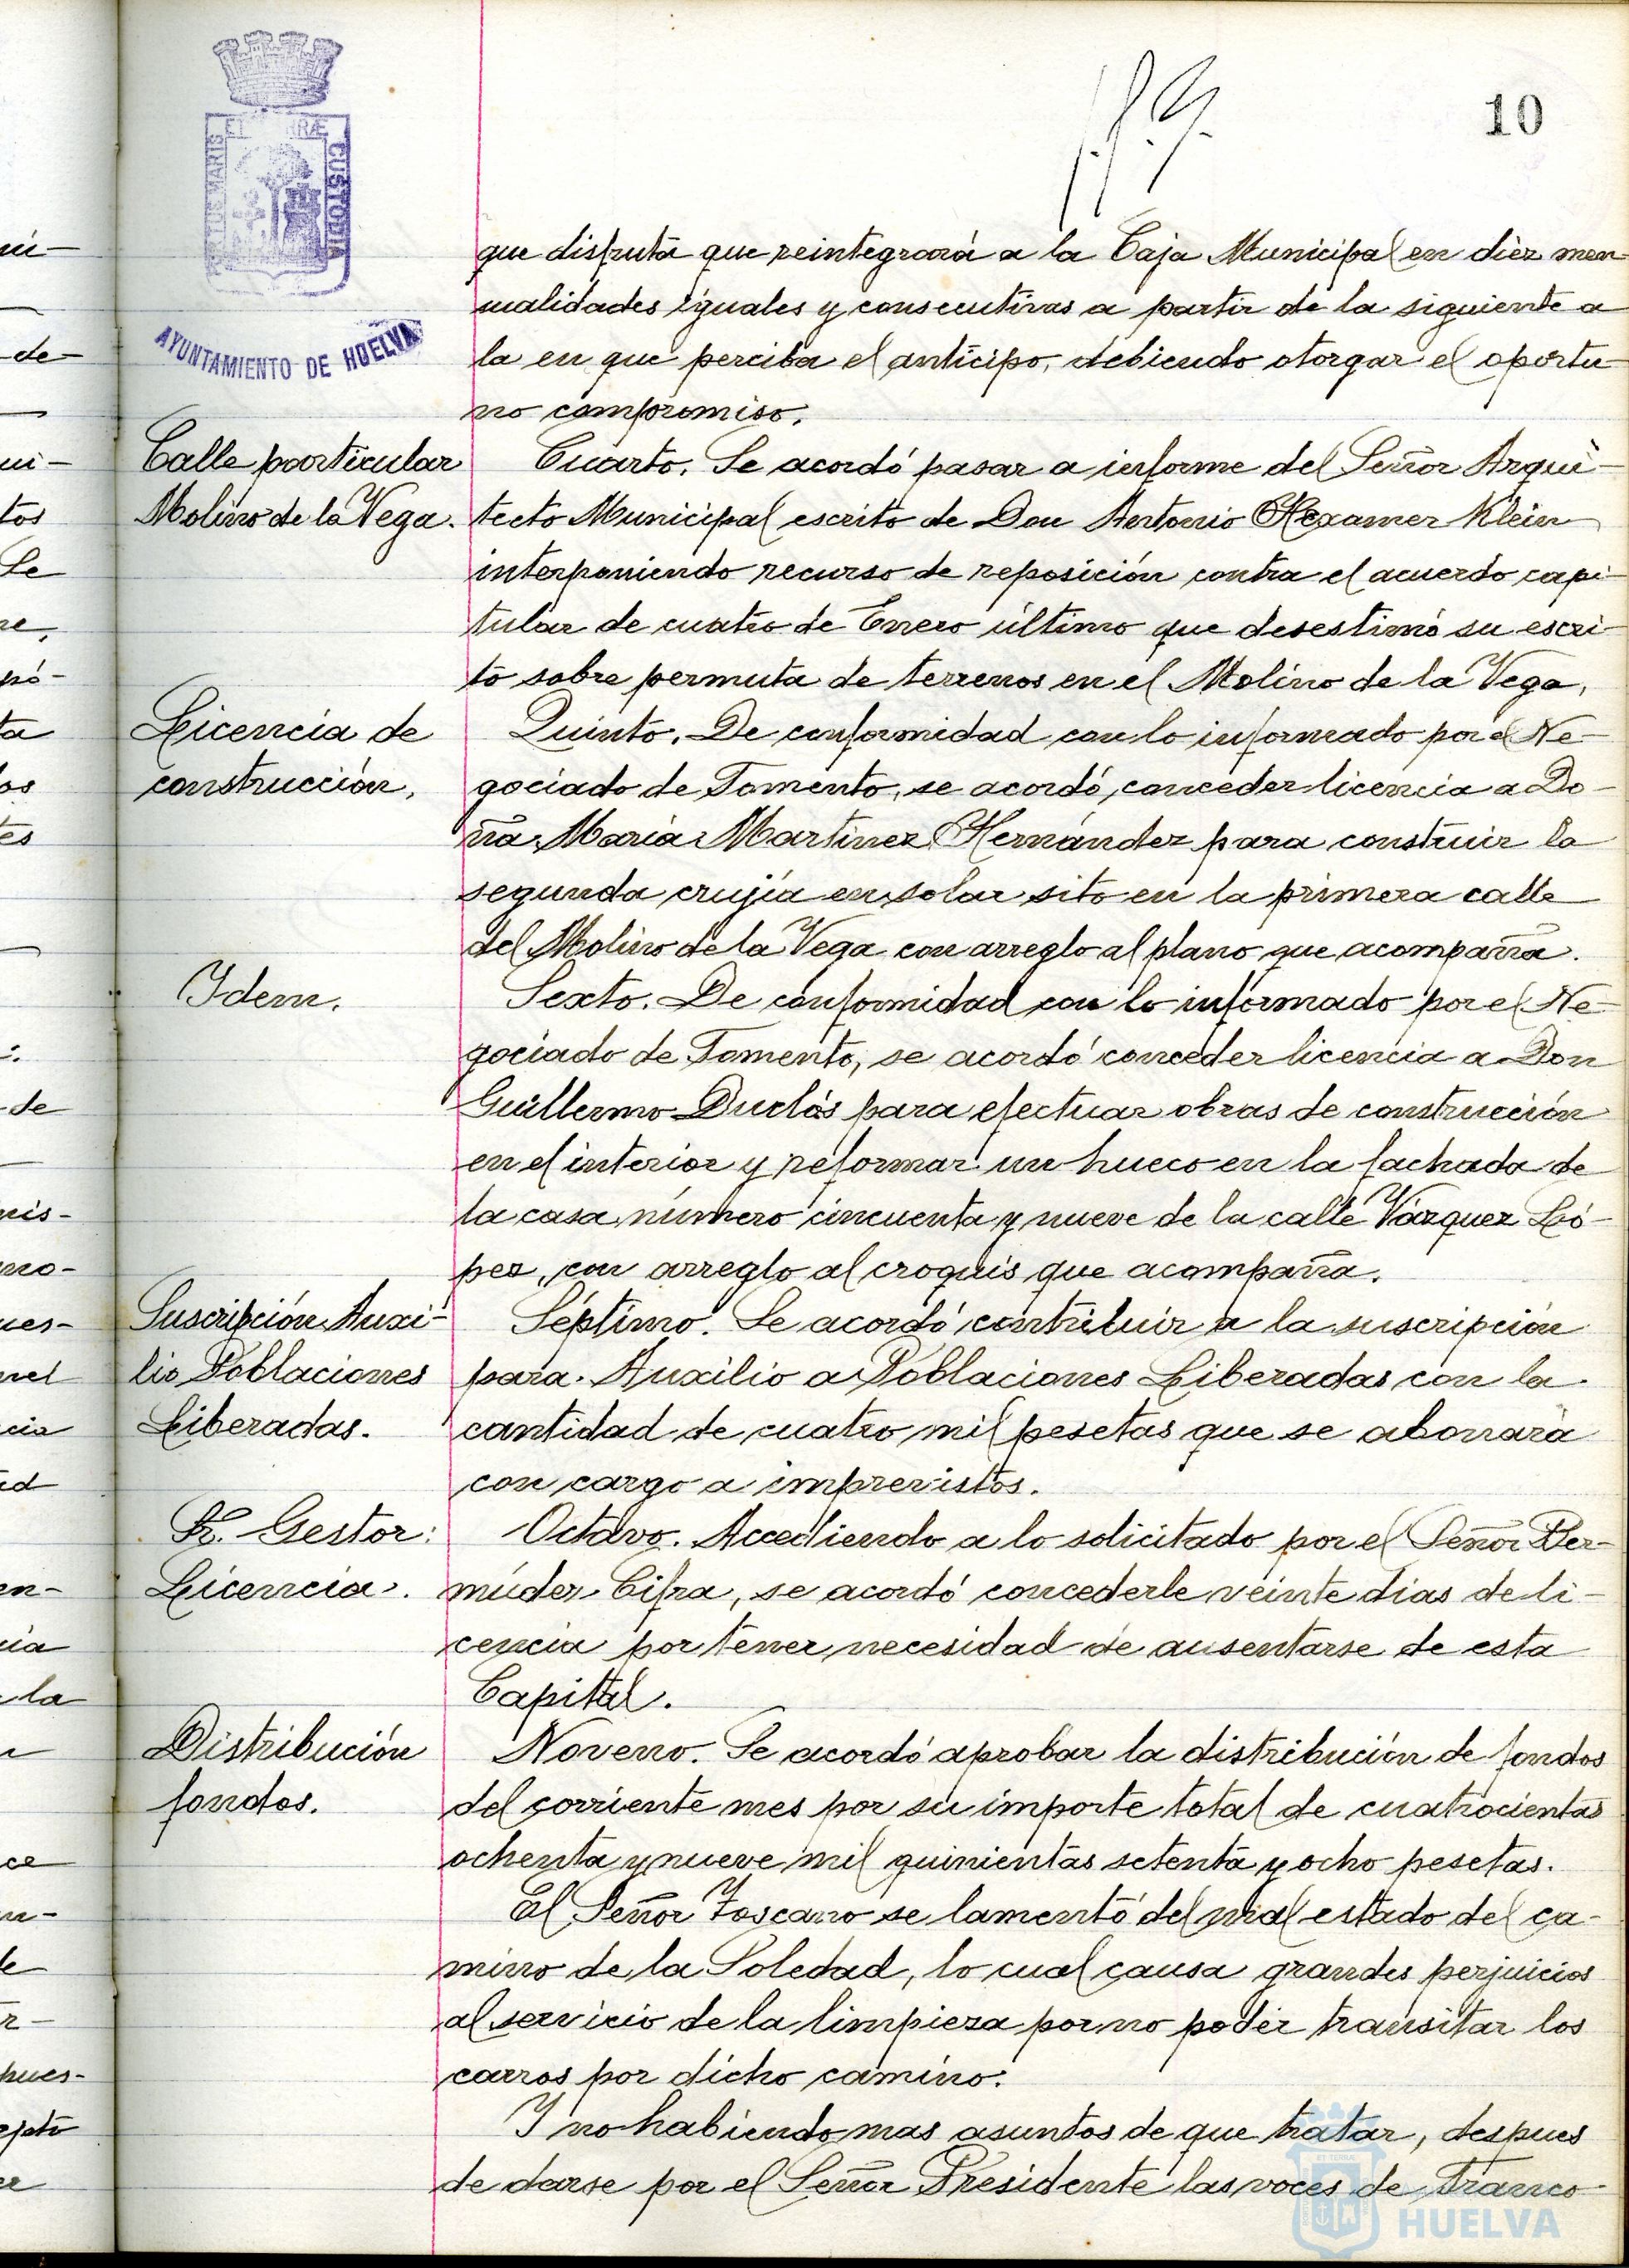 10
PORTUS MARIS ET TERRÆ CUSTODIA
AYUNTAMIENTO DE HUELVA
que disfruta que reintegrará a la Caja Municipal en diez men-
sualidades iguales y consecutivas a partir de la siguiente a
la en que perciba el anticipo, debiendo otorgar el oportu-
no compromiso.
Calle particular
Molino de la Vega.
Cuarto. Se acordó pasar a informe del Señor Arqui-
tecto Municipal escrito de Don Antonio Hexamer Klein
interponiendo recurso de reposición contra el acuerdo capi-
tular de cuatro de Enero último que desestimó su escri-
to sobre permuta de terrenos en el Molino de la Vega.
Licencia de
construcción.
Quinto. De conformidad con lo informado por el Ne-
gociado de Fomento, se acordó conceder licencia a Do-
ña María Martínez Hernández para construir la
segunda crujía en solar sito en la primera calle
del Molino de la Vega con arreglo al plano que acompaña.
Idem.
Sexto. De conformidad con lo informado por el Ne-
gociado de Fomento, se acordó conceder licencia a Don
Guillermo Duclós para efectuar obras de construcción
en el interior y reformar un hueco en la fachada de
la casa número cincuenta y nueve de la calle Vázquez Ló-
pez, con arreglo al croquis que acompaña.
Suscripción Auxi-
lio Poblaciones
Liberadas.
Séptimo. Se acordó contribuir a la suscripción
para Auxilio a Poblaciones Liberadas con la
cantidad de cuatro mil pesetas que se abonará
con cargo a imprevistos.
Sr. Gestor:
Licencia.
Octavo. Accediendo a lo solicitado por el Señor Ber-
múdez Cifra, se acordó concederle veinte días de li-
cencia por tener necesidad de ausentarse de esta
Capital.
Distribución
fondos.
Noveno. Se acordó aprobar la distribución de fondos
del corriente mes por su importe total de cuatrocientas
ochenta y nueve mil quinientas setenta y ocho pesetas.
El Señor Toscano se lamentó del mal estado del ca-
mino de la Soledad, lo cual causa grandes perjuicios
al servicio de la limpieza por no poder transitar los
carros por dicho camino.
Y no habiendo mas asuntos de que tratar, despues
de darse por el Señor Presidente las voces de Franco
HUELVA